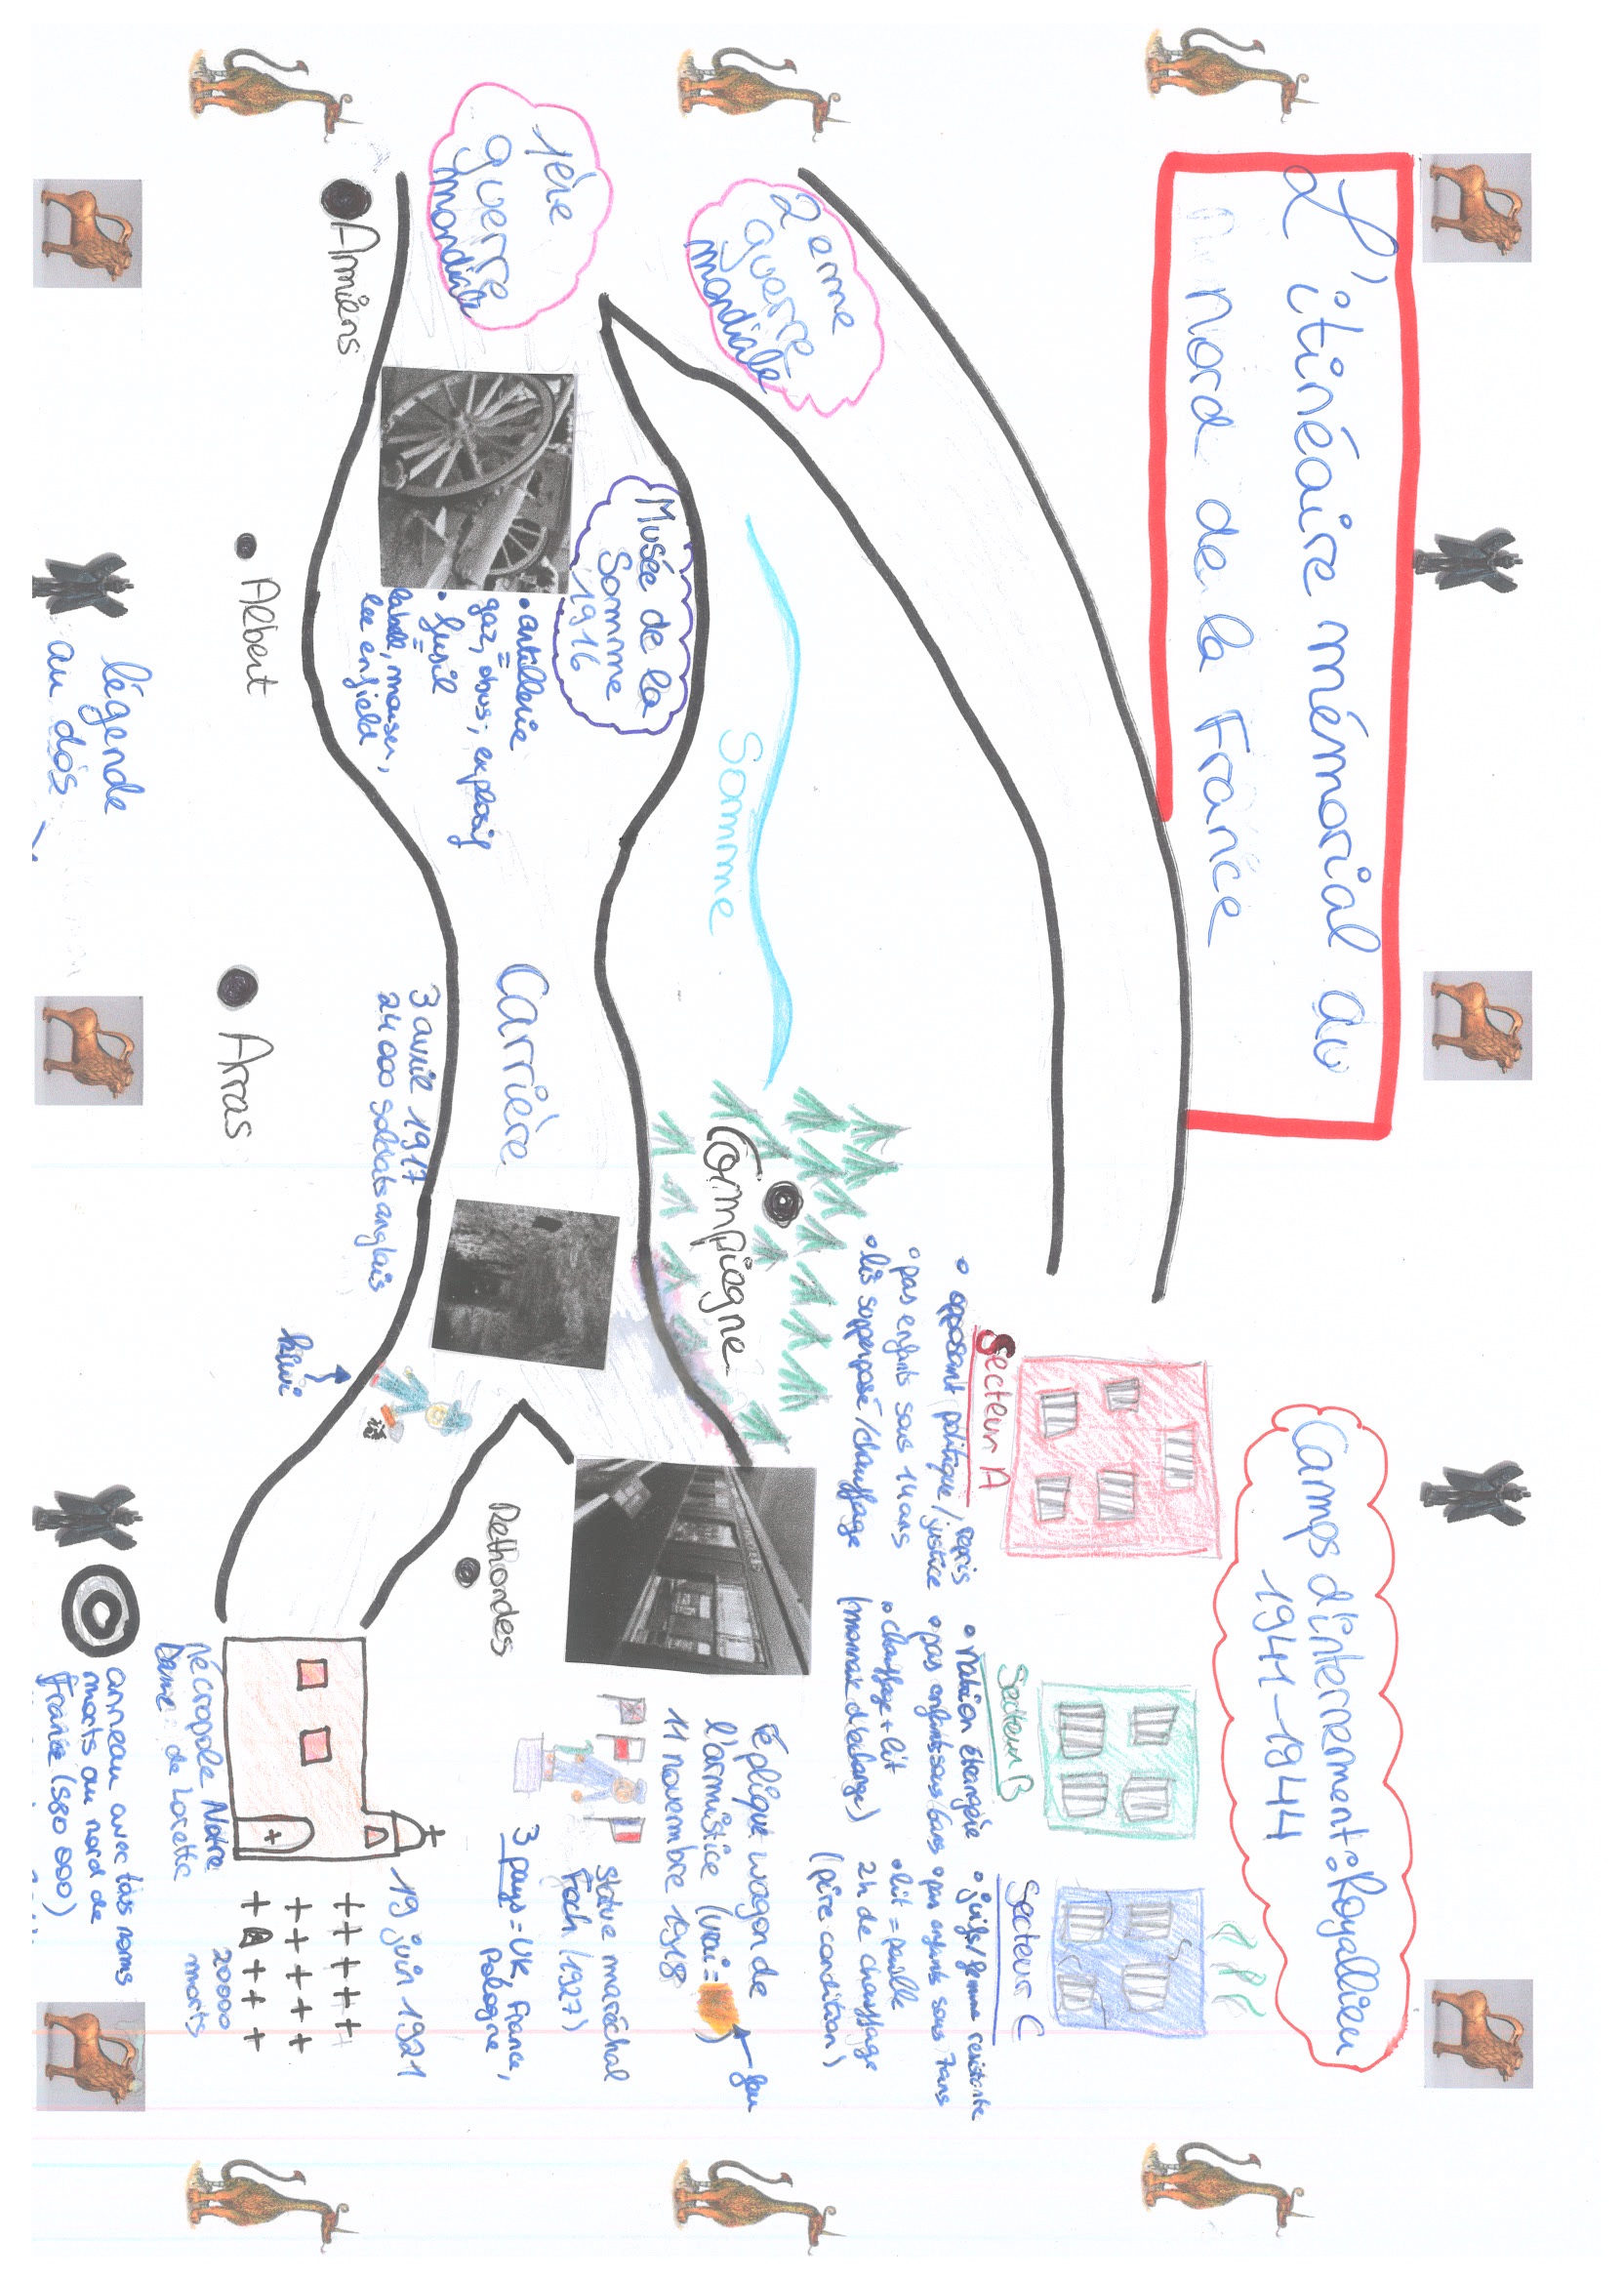 L'itinéaire mémorial du
nord de la France
2eme
guerre
mondiale
1ère
guerre
mondiale
Amiens
Musée de la
Somme
1916
• artillerie
=
gaz, obus, explosif
• fusil
=
labele, mauser,
lee enfield
Albert
Somme
légende
au dos
Carrière
3 avril 1917
24 000 soldats anglais
Arras
Compiegne
kiwi
Camps d'internement : Royallieu
1941-1944
Secteur A
• opposant politique / repris
justice
• pas enfants sous 14 ans
• lis superposé / chauffage
Secteur B
• nation étrangère
• pas enfants sous
• chauffage + lit
(monnaie d'échange)
Secteur C
• juifs / femme resistante
• pas enfants sous 7 ans
• lit = paille
2h de chauffage
(pire condition)
Rethondes
réplique wagon de
l'armistice (vrai = )
feu
11 novembre 1918
statue maréchal
Foch (1927)
3 pays = UK, France,
Pologne
19 juin 1921
Nécropole Notre
Dame de Lorette
20000
morts
anneau avec tous noms
morts au nord de
France (580 000)